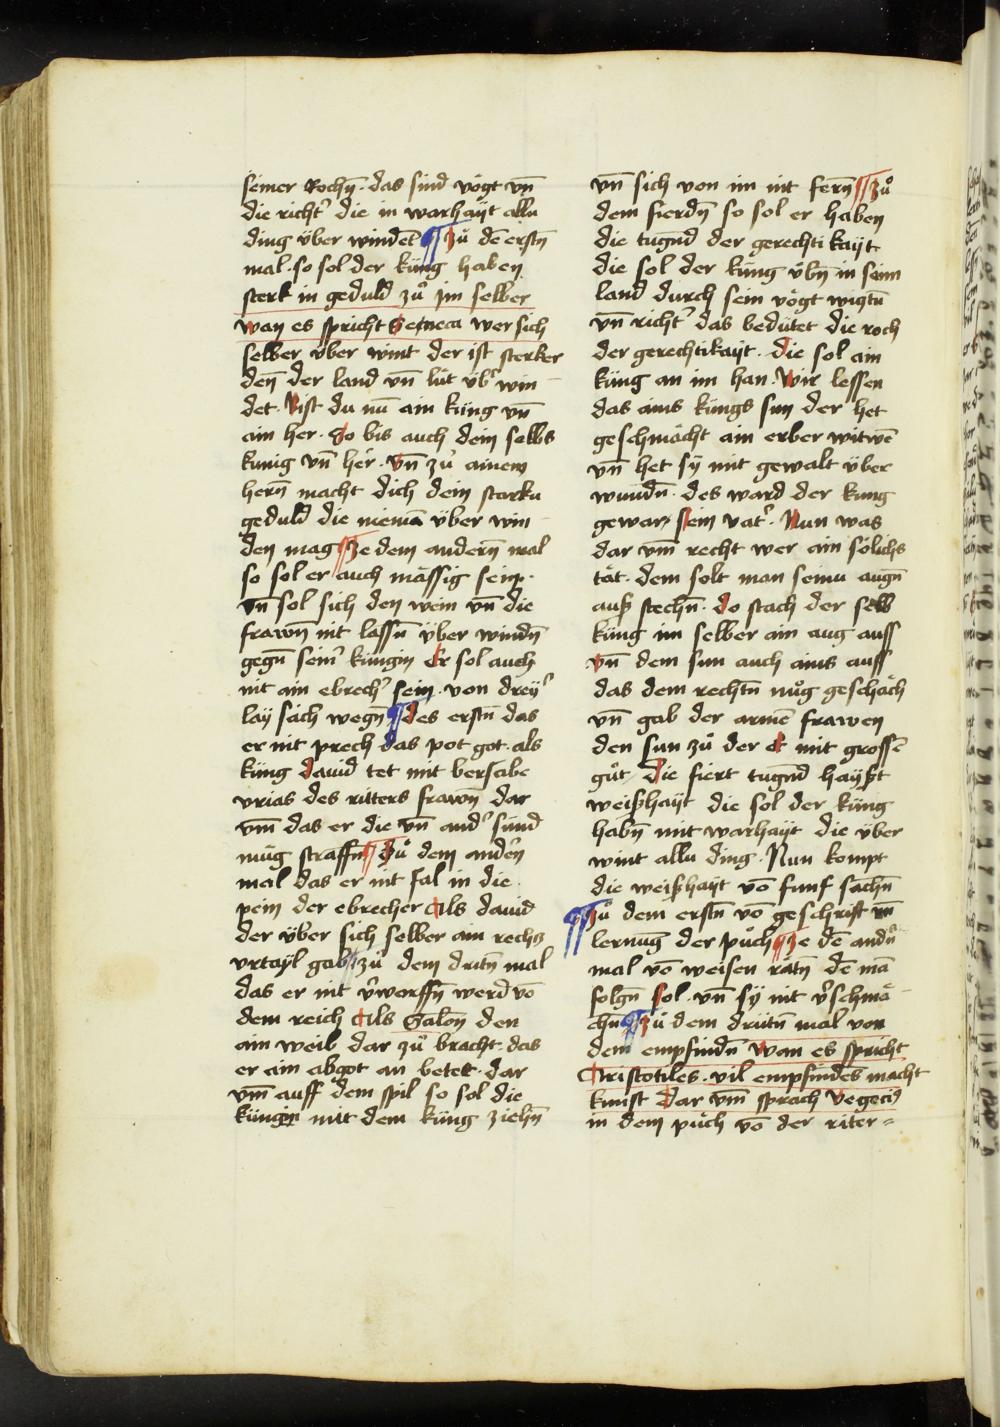 seiner Rochn̄ · das sind vögt vn̄
die richt᷑ die in warhayt allu
ding über winden ¶ Zů dē erstn̄
mal · so sol der küng haben
sterk in geduld zů jm selber
wan es spricht Seneca wer sich
selber über wint der ist sterker
den̄ der land vn̄ lüt üb᷑ win
det · Bist du nū ain küng vn̄
ain her · So bis auch dein selbs
kunig vn̄ her · vn̄ zů ainem
hern̄ macht dich dein starku
geduld die niemā über win
den mag ¶ Ze dem andern̄ mal
so sol er auch mässig sein ·
Vn̄ sol sich den wein vn̄ die
frawn̄ nit lassn̄ über windn̄
gegn̄ sein᷑ küngin Er sol auch
nit ain ebrech᷑ sein · von drey᷑
lay sach wegn̄ ¶ des erstn̄ das
er nit prech das pot got · als
küng dauid tet mit bersabe
vrias des ritters frawn̄ dar
vm̄ das er die vn̄ and᷑ sünd
müg straffn̄ ¶ Zů dem andern̄
mal das er nit fal in die
pein der ebrecher Als dauid
der über sich selber ain rechz
vrtayl gab ¶ zů dem dritn̄ mal
das er nit v᷑worffn̄ werd vō
dem reich Als Salon̄ den
ain weib dar zů bracht · das
er ain abgot an betet · dar
vm̄ auff dem spil so sol die
küngin mit dem küng ziehn̄
vn̄ sich von im nit fern̄ ¶ Zů
dem fierdn̄ so sol er haben
die tugn̄d der gerechtikayt
die sol der küng übn̄ in seim
land durch sein vögt witztn̄
vn̄ richt᷑ das bedütet die roch
der gerechtikayt · die sol ain
küng an im han · Wir lessen
das ains küngs sun der het
geschmächt ain erber witwē
vn̄ het sÿ mit gewalt über
wundn̄ · des ward der kung
gewar sein vat᷑ · Nun was
dar vm̄ recht wer ain sölichs
tät · dem solt man seinu augn̄
auß stechn̄ · do stach der selb
küng im selber ain aug auss
vn̄ dem sun auch ains auss
das dem rechtn̄ nůg geschäch
vn̄ gab der armē frawen
den sun zů der e mit grossē
gůt · Die fiert tugn̄d hayßt
weißhayt die sol der küng
habn̄ mit warhayt die über
wint allu ding · Nun kompt
die weißhayt vō funf sachn̄
¶ Zů dem erstn̄ vō geschrift vn̄
lernūg der půch ¶ Ze dē andn̄
mal vō weisen rätn̄ dē mā
folgn̄ sol · vn̄ sÿ nit v᷑schmä
chn̄ ¶ Zů dem drittn̄ mal von
dem empfindn̄ Wan es spricht
Aristotiles · vil empfindes macht
kunst Dar vm̄ sprach Vegeci᷑
in dem půch vō der riter=